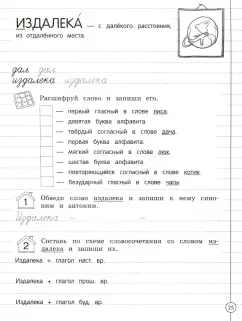 ИЗДАЛЕКА́ — с далёкого расстояния,
из отдалённого места.
дал дал
издалека издалека
Расшифруй слово и запиши его.
— первый гласный в слове лиса.
— девятая буква алфавита.
— твёрдый согласный в слове дача.
— первая буква алфавита.
— мягкий согласный в слове люк.
— шестая буква алфавита.
— повторяющийся согласный в слове котик.
— безударный гласный в слове часы.
1 Обведи слово издалека и запиши к нему сино-
ним и антоним.
Издалека — —
2 Составь по схеме словосочетания со словом из-
далека и запиши их.
Издалека + глагол наст. вр.
Издалека + глагол прош. вр.
Издалека + глагол буд. вр.
25